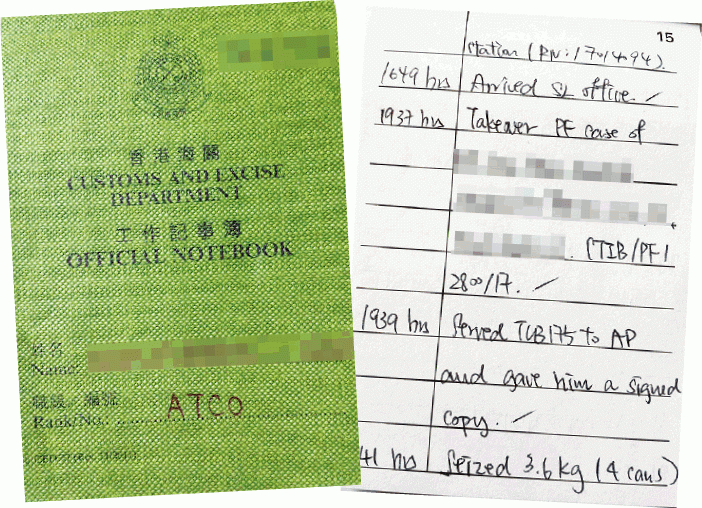 香港海關
CUSTOMS AND EXCISE
DEPARTMENT
工作記事簿
OFFICIAL NOTEBOOK
姓名
Name
職級／編號
Rank/No. ATCO
15
station (RN: 1701494).
1649 hrs Arrived SL office. ✓
1937 hrs Takeover PF case of
(TIB/PF1
2800/17. ✓
1939 hrs Served TCB175 to AP
and gave him a signed
copy. ✓
41 hrs Seized 3.6 kg (4 cans)